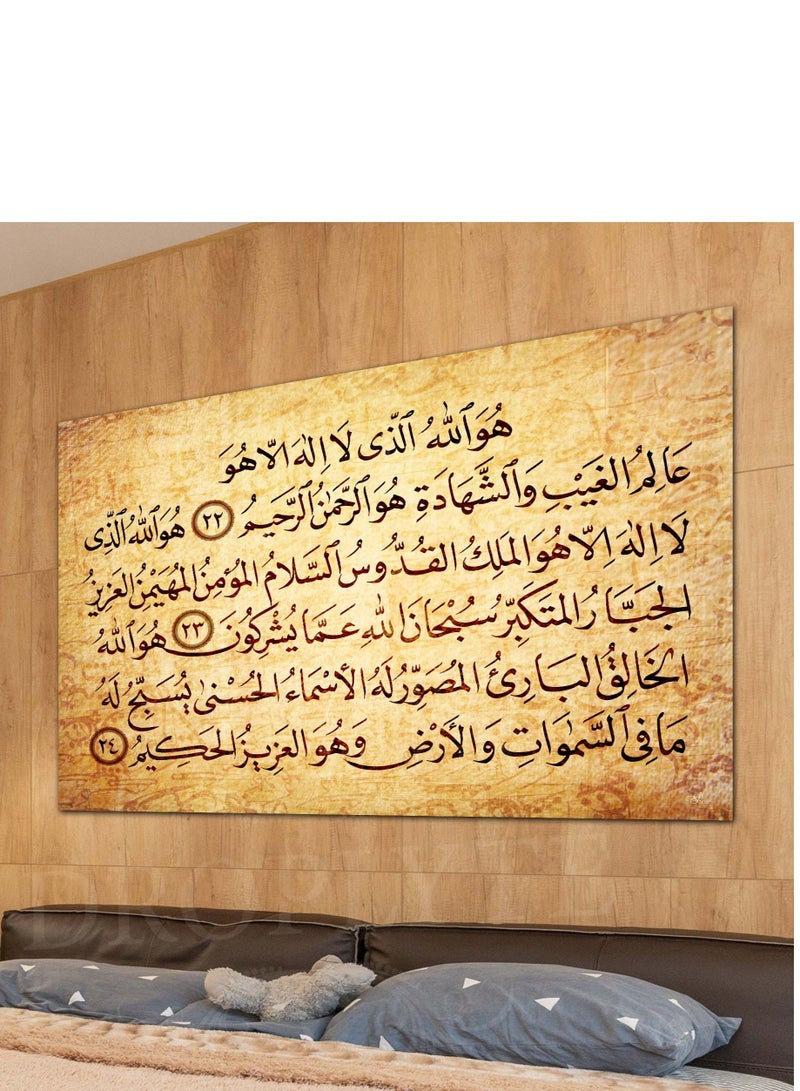 هُوَ ٱللَّهُ ٱلَّذِى لَا إِلٰهَ إِلَّا هُوَ
عَالِمُ الغَيْبِ وَٱلشَّهَادَةِ هُوَ الرَّحْمٰنُ الرَّحِيمُ ٢٢ هُوَ ٱللَّهُ ٱلَّذِى
لَا إِلٰهَ إِلَّا هُوَ المَلِكُ القُدُّوسُ ٱلسَّلَامُ المُؤْمِنُ المُهَيْمِنُ العَزِيزُ
الجَبَّارُ المُتَكَبِّرُ سُبْحَانَ اللهِ عَمَّا يُشْرِكُونَ ٢٣ هُوَ اللهُ
الخَالِقُ البَارِئُ المُصَوِّرُ لَهُ الأَسْمَاءُ الحُسْنىٰ يُسَبِّحُ لَهُ
مَا فِى ٱلسَّمٰوَاتِ وَالأَرْضِ وَهُوَ العَزِيزُ الحَكِيمُ ٢٤